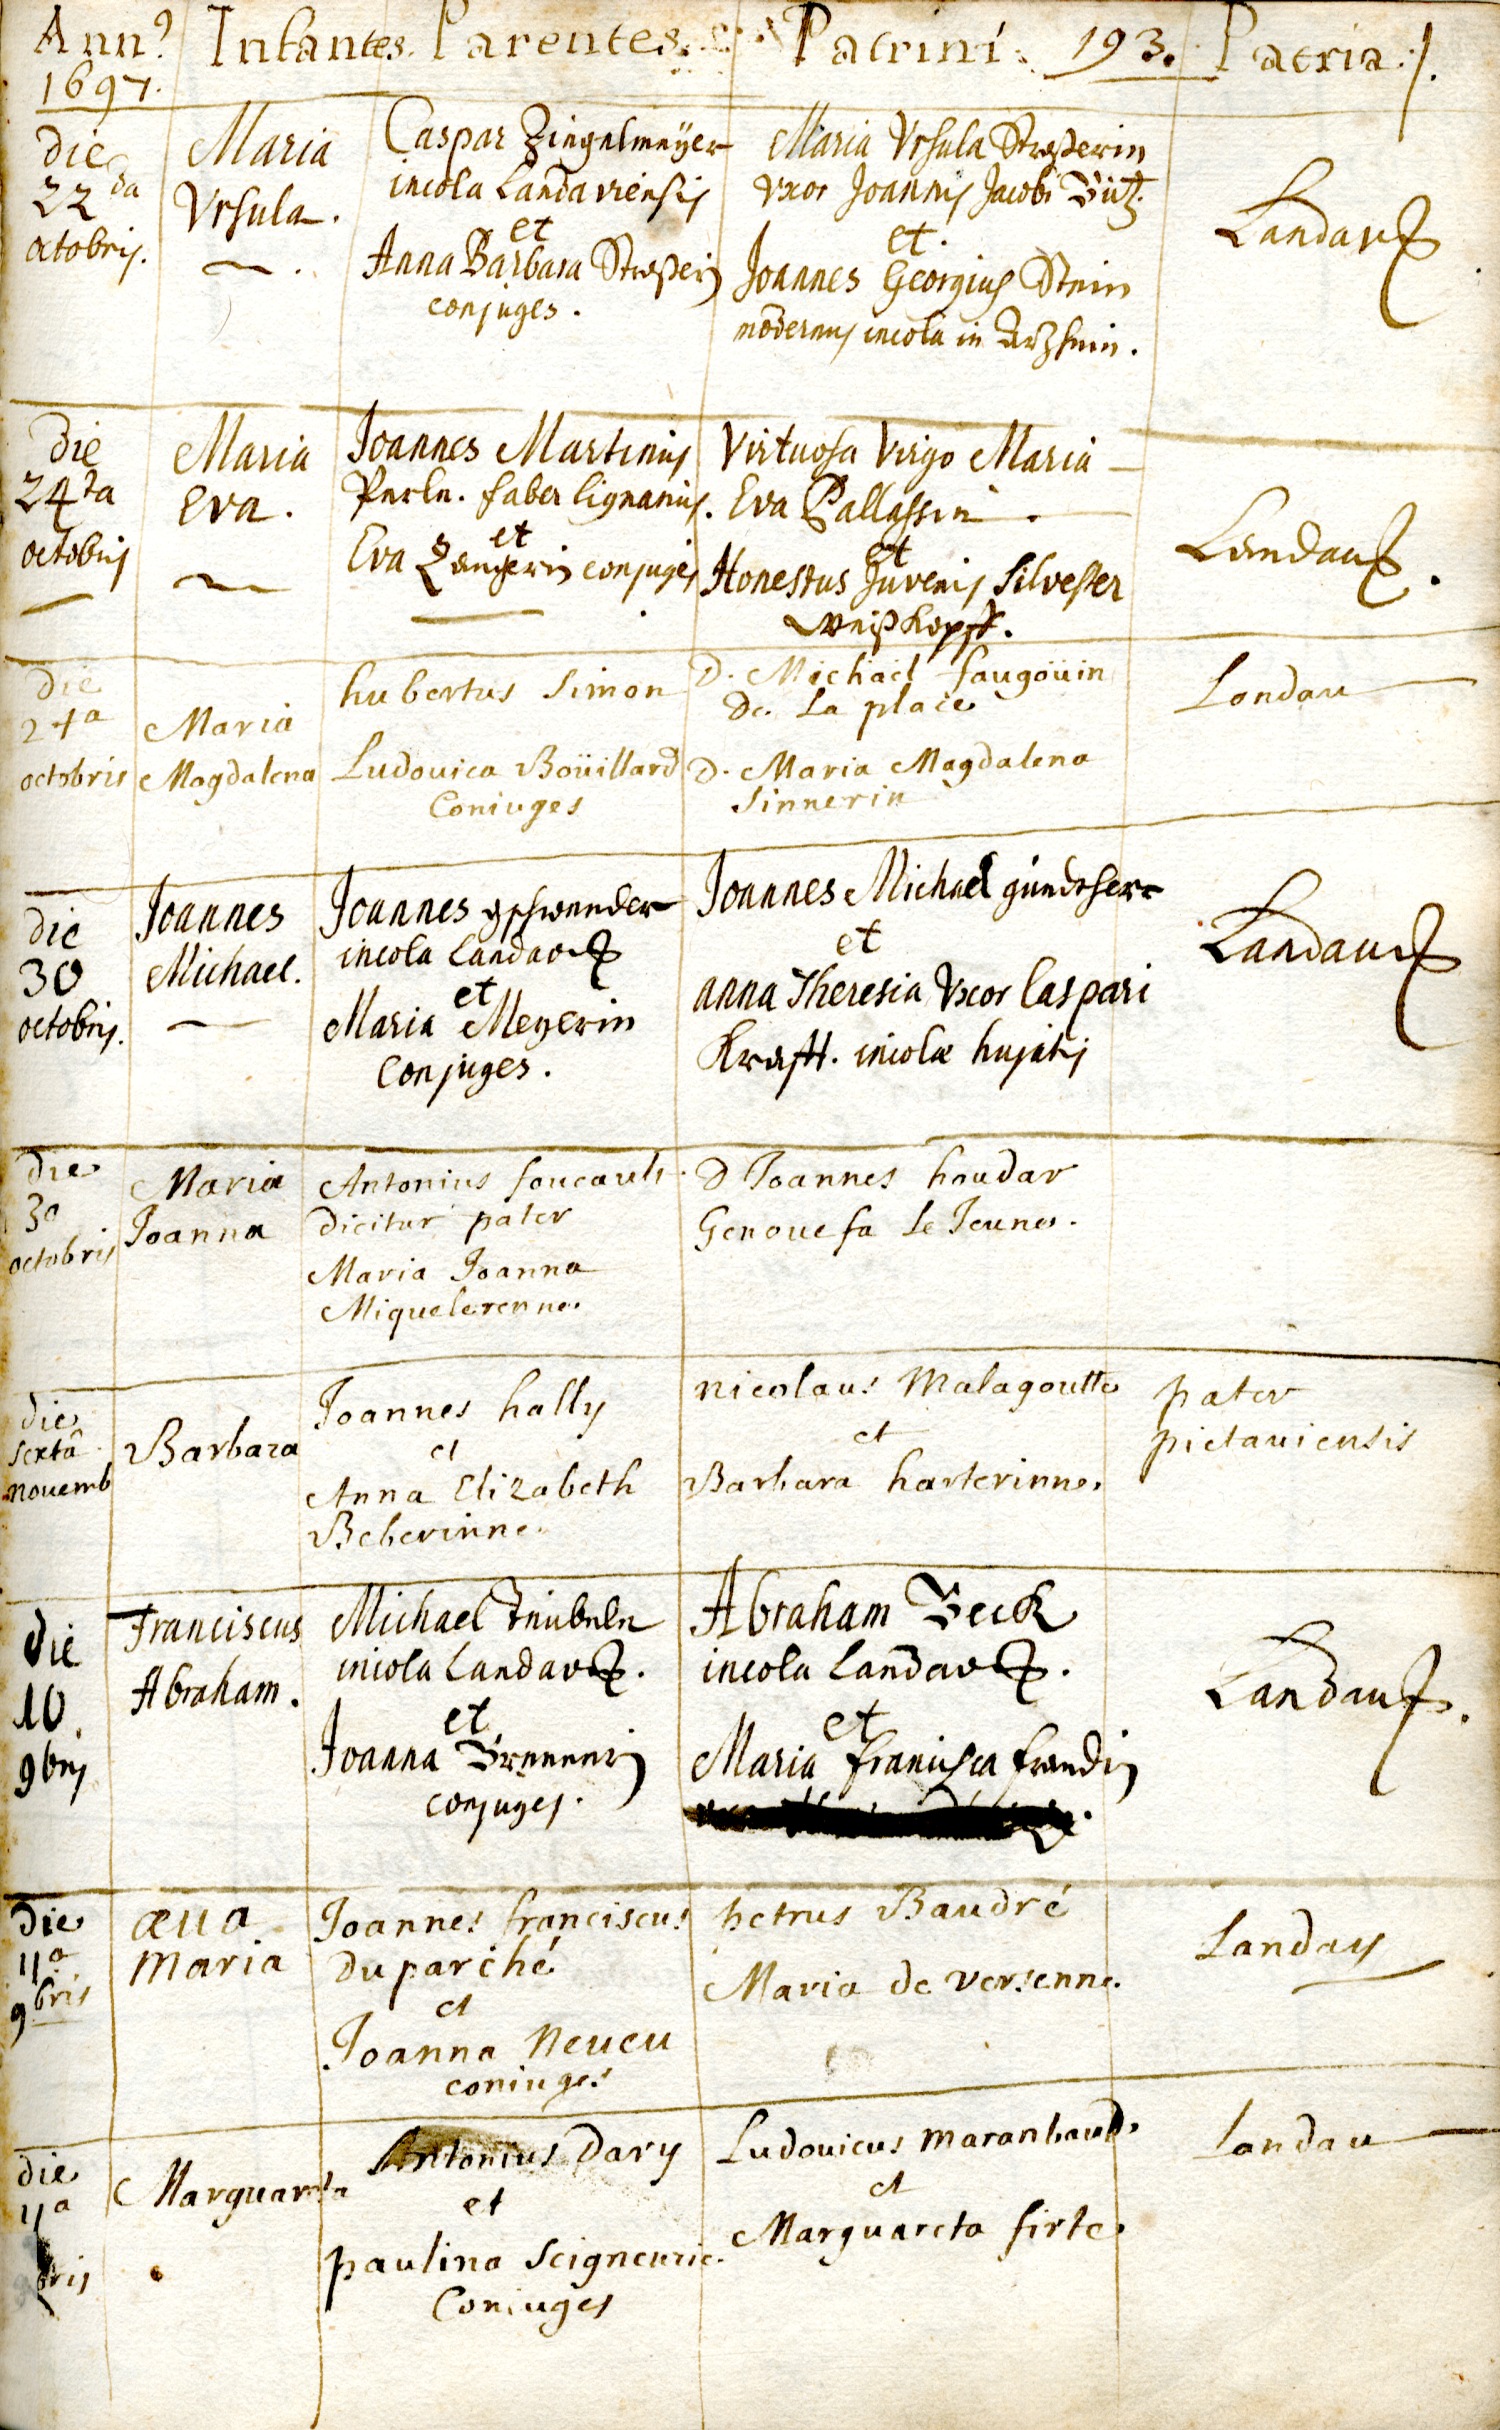 Anno Infantes. Parentes. Patrini. 193. Patria.
1697.
die
22da
octobris.
Maria
Vrsula.
Caspar Ziegelmeÿer
incola Landaviensis
et
Anna Barbara Straßerin
conjuges.
Maria Vrsula Straßerin
vxor Joannis Jacobi Bütz.
et.
Joannes Georgius Stein
modernus incola in Arzheim.
Landavij
die
24ta
octobris
Maria
Eva.
Joannes Martinus
faber lignarius.
et
Eva conjuges
Virtuosa Virgo Maria
Eva Pallassin.
et
Honestus Juvenis Silvester
Weißkopff.
Landau
die
24a
octobris
Maria
Magdalena
hubertus Simon
Ludouica Boüillard
Coniuges
D. Michaël faugoüin
De La place
D. Maria Magdalena
Sinnerin
Landau
die
30
octobris.
Joannes
Michael.
Joannes gschwender
incola Landavij
et
Maria Meyerin
Conjuges.
Joannes Michael güntherr
et
anna Theresia Vxor Caspari
Krafft. incolæ hujatis
Landavij
die
30
octobris
Maria
Joanna
Antonius foucault
dicitur pater
Maria Joanna
Miquelerenne.
D Joannes houdar
Genouefa Le Jeune.
die
sextâ
nouemb
Barbara
Joannes hally
et
Anna Elizabeth
Beberinne.
nicolaus Malagoutte
et
Barbara harterinne.
pater
pictauiensis
die
10.
9bris
Franciscus
Abraham.
Michael
incola Landavij.
et
Joanna Brennerin
conjuges.
Abraham Beck
incola Landavij.
et
Maria francisca frandin
Landau.
die
11a
9bris
æua
Maria
Joannes franciscus
duparché
et
Joanna Neueu
coniuges
petrus Baudré
Maria de versenne.
Landau
die
11a
9bris
Marguareta
Antonius Dary
et
paulina Seigneurie.
Coniuges
Ludouicus maranbaud.
et
Marguareta firte.
Landau